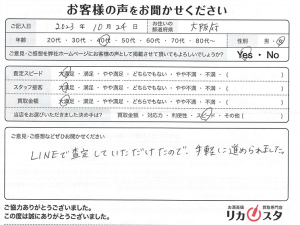 お客様の声をお聞かせください
ご記入日 2023年10月24日 お住いの都道府県 大阪府
年齢 20代・30代・40代・50代・60代・70代・80代〜 性別 男・女
ご意見・ご感想を弊社ホームページにお客様の声として掲載させて頂いてもよろしいでしょうか? Yes・No
査定スピード 大満足・満足・やや満足・どちらでもない・やや不満・不満・( )
スタッフ接客 大満足・満足・やや満足・どちらでもない・やや不満・不満・( )
買取金額 大満足・満足・やや満足・どちらでもない・やや不満・不満・( )
当店をお選びいただきました決め手は? 買取金額・対応力・利便性・ ・その他( )
ご意見・ご感想などぜひお聞かせください
LINEで査定していただけたので、手軽に進められました。
ご協力ありがとうございました。
この度は誠にありがとうございました。
お酒高額買取専門店
リカスタ